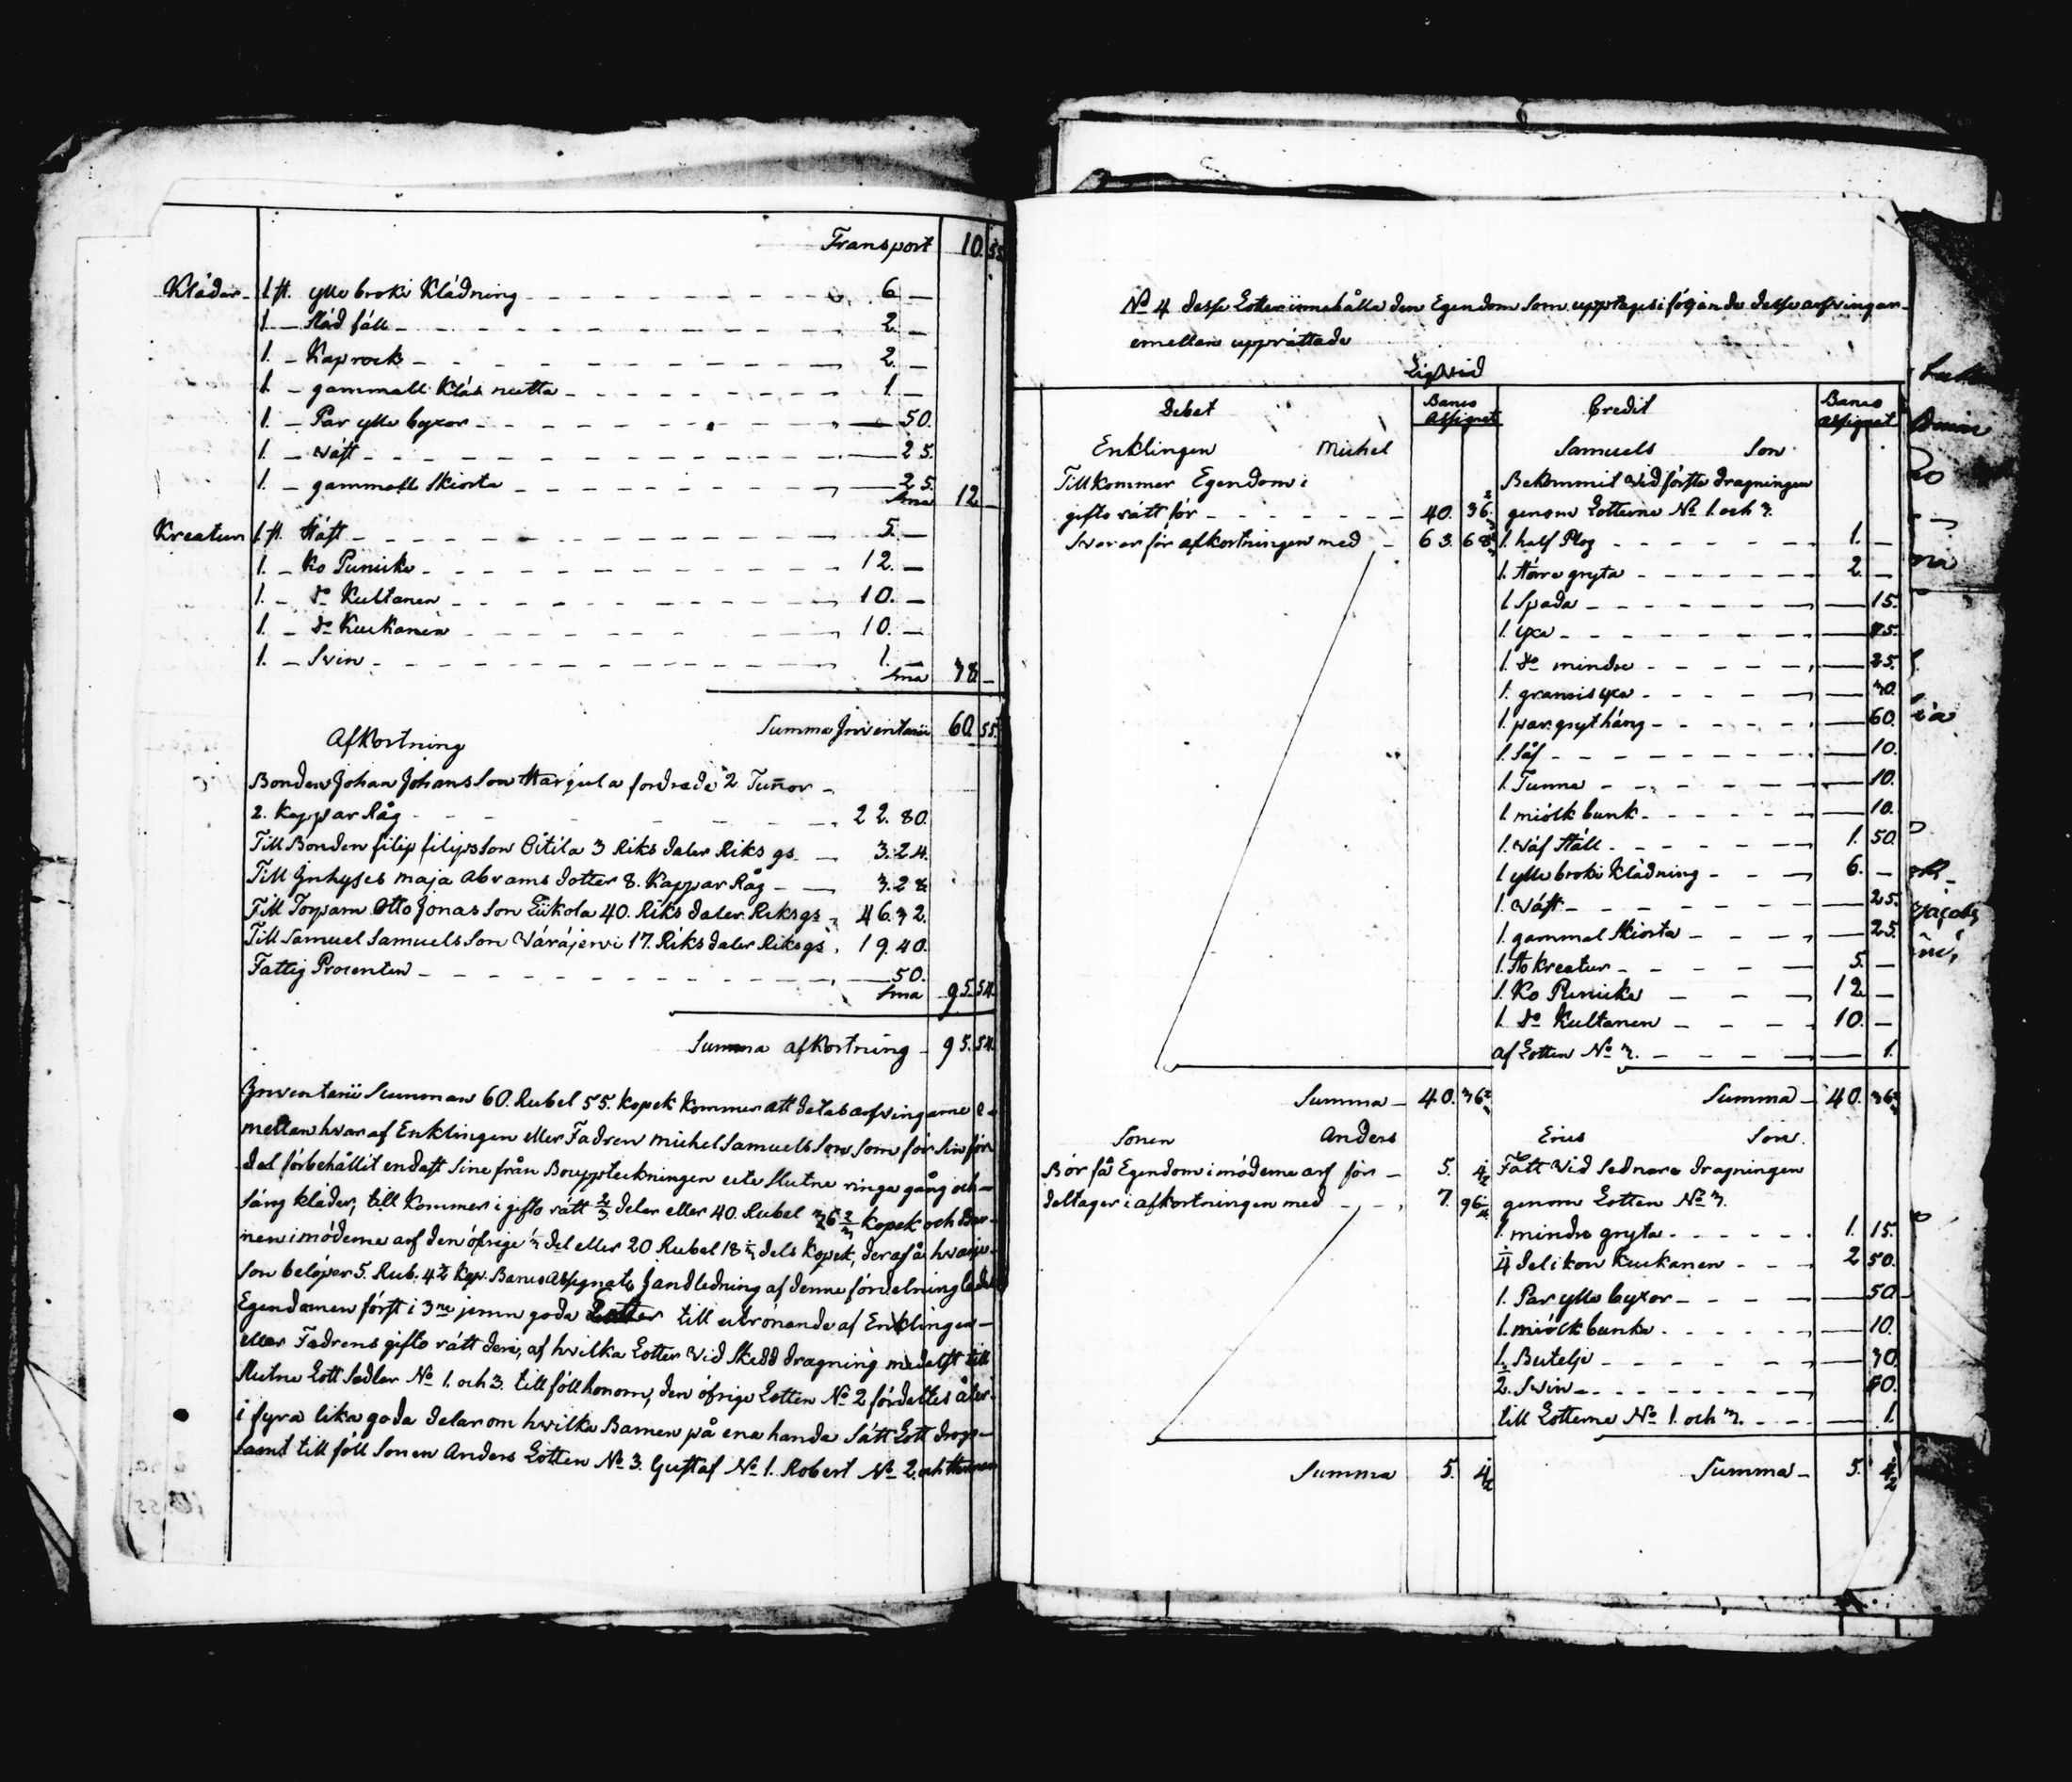 Transport 10. 55
Kläder 1 st. ylle broki Klädning 6 —
1. — Släd fäll 2 —
1. — Kaprock 2 —
1. — gammall Kläs 1 —
1. — Par ylle byxor — 50.
1. — Wäst — 25.
1. — gammall Skiorta — 25.
Sma 12 —
Kreatur 1 st. Häst 5 —
1. — Ko Punicko 12. —
1. — do Kultanen 10. —
1. — do Kuckanen 10. —
1. — Svin 1. —
Sma 38 —
Summa Inventarii 60. 55.
Afkortning
Bonden Johan Johansson Harjula fordrade 2 Tunnor
2. Kappar Råg 22. 80.
Till Bonden filip filipsson Oitila 3 Riksdaler Riksgs 3. 24.
Till Inhyses maja Abrams dotter 8. Kappar Råg 3. 28
Till Torparn Otto Jonasson Eikola 40. Riksdaler Riksgs 46. 32.
Till Samuel Samuelsson Wäräjervi 17. Riksdaler Riksgs 19. 40.
Fattig Procenten — 50.
Sma 95. 54.
Summa afkortning 95. 54.
Inventarii Summan 60. Rubel 55. kopek kommer att delas arfvingarne e-
mellan hvaraf Enklingen eller Fadren michel Samuelsson som för sin för
del förbehållit endast sine från Bouppteckningen ute slutne ringa gång och
säng kläder, till kommer i gifto rätt 2/3 delar eller 40. Rubel 36 2/3 kopek och Bar-
nen i möderne arf den öfrige 1/3 del eller 20 Rubel 18 1/3 dels kopek, deraf å hvarje
Son belöper 5. Rub. 4 1/2 Kop. Banco Assignat. I andledning af denne fördelning lades
Egendomen först i 3ne jemn goda Lotter till utrönande af Enklingen
eller Fadrens gifto rätt deri, af hvilka Lotter vid skedd dragning medelst till
slutne Lott Sedlar No 1. och 3. till föll honom, den öfrige Lotten No 2 fördeltes åter
i fyra lika goda delar om hvilka Barnen på ena handa sätt Lott drogs
samt till föll Sonen Anders Lotten No 3. Gustaf No 1. Robert No 2. och
No 4 desse Lotter innehålla den Egendom som upptages i följande desse arfvingar
emellan upprättade
Liqvid
Debet Banco Assignat Credit Banco Assignat
Enklingen Michel Samuels Son
Tillkommer Egendom i Bekommit vid första dragningen
gifto rätt för 40. 36 2/3 genom Lotterne No 1. och 3.
Svarar för afkortningen med 63. 68 1. half Plog 1. —
1. Större gryta 2. —
1. Spada — 15.
1. yxa — 25.
1. do mindre — 25.
1. yxa — 30.
1. par grythäng — 60.
1. Såf — 10.
1. Tunna — 10.
1. miölk bunk — 10.
1. Wäf Ställ 1. 50.
1. ylle broki Klädning 6. —
1. Wäst — 25.
1. gammal Skiorta — 25.
1. Sto kreatur 5. —
1. Ko Punicko 12 —
1. do Kultanen 10. —
af Lotten No 3. — 1.
Summa 40. 36 2/3 Summa 40. 36 2/3
Sonen Anders Erics Son
Bör få Egendom i möderne arf för 5. 4 1/2 Fått vid sednare dragningen
deltager i afkortningen med 7. 96 genom Lotten No 3.
1. mindre gryta 1. 15.
1/4 del i kon Kuckanen 2 50.
1. Par ylle byxor — 50
1. miölk bunke — 10.
1. Butelje — 30.
1/2. Svin — 50.
till Lotterne No 1. och 3. — 1.
Summa 5. 4 1/2 Summa 5. 4 1/2